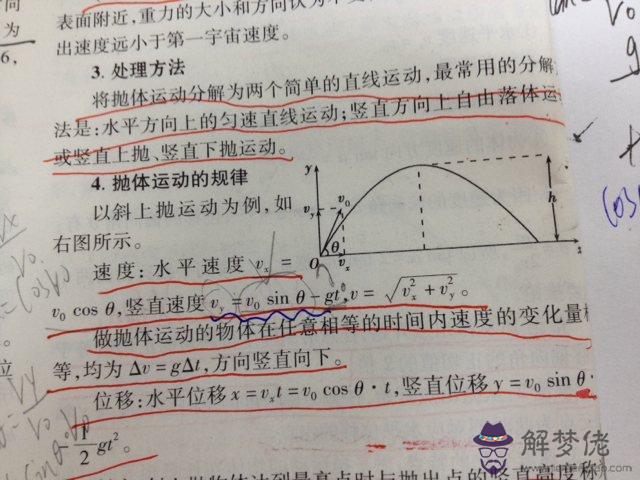 表面附近,重力的大小和方向认为不
出速度远小于第一宇宙速度。
3. 处理方法
将抛体运动分解为两个简单的直线运动,最常用的分解
法是:水平方向上的匀速直线运动;竖直方向上自由落体运
或竖直上抛、竖直下抛运动。
4. 抛体运动的规律
以斜上抛运动为例,如
右图所示。
y
v_y
v_0
θ
O
v_x
x
h
速度:水平速度 v_x =
v_0 cos θ,竖直速度 v_y = v_0 sin θ - gt, v = √(v_x² + v_y²)。
做抛体运动的物体在任意相等的时间内速度的变化量相
等,均为 Δv = gΔt,方向竖直向下。
位移:水平位移 x = v_x t = v_0 cos θ · t,竖直位移 y = v_0 sin θ ·
1/2 gt²。
做抛体达到最高点时与抛出点的竖直高度称
为
6,
位
v_0
g
cos
解梦佬